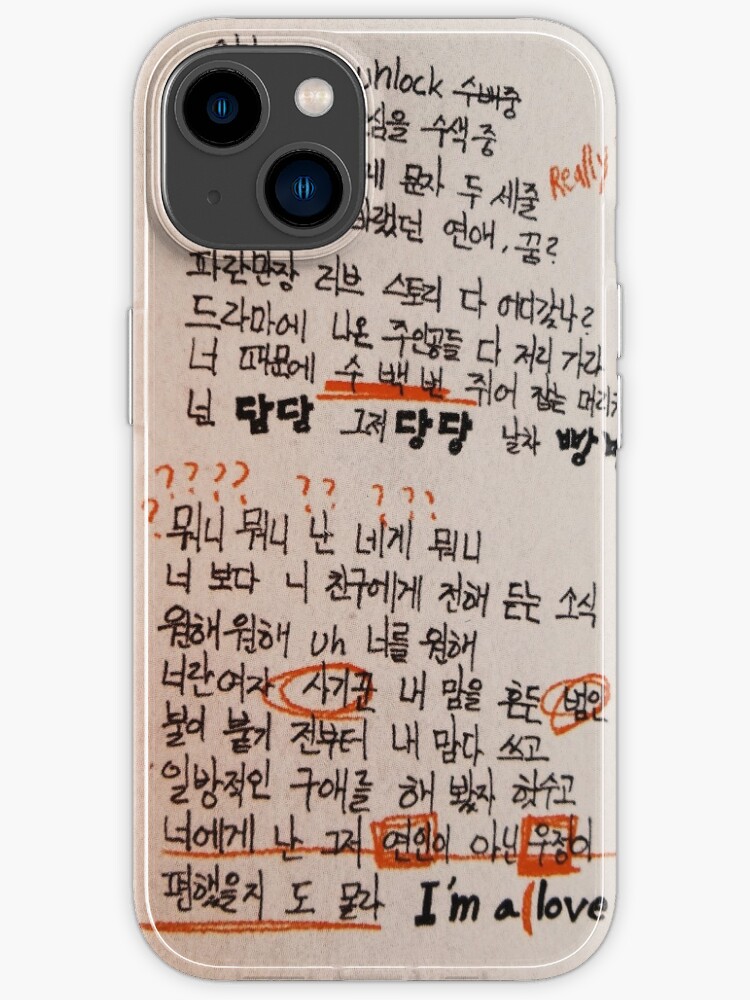 unlock 수배중
심을 수색중
문자 두 세줄
Really
바랬던 연애, 꿈?
파란만장 러브 스토리 다 어디갔나?
드라마에 나온 주인공들 다 저리 가라
너 때문에 수 백 번 쥐어 잡는 머리
넌 답답 그저 당당 날차 빵
????? ?? ???
뭐니 뭐니 난 네게 뭐니
너 보다 니 친구에게 전해 듣는 소식
원해 원해 uh 너를 원해
너란 여자 사기꾼 내 맘을 흔든 범인
불이 붙기 전부터 내 맘 다 쓰고
일방적인 구애를 해 봤자 헛수고
너에게 난 그저 연인이 아닌 우정이
편했을지 도 몰라 I'm a love